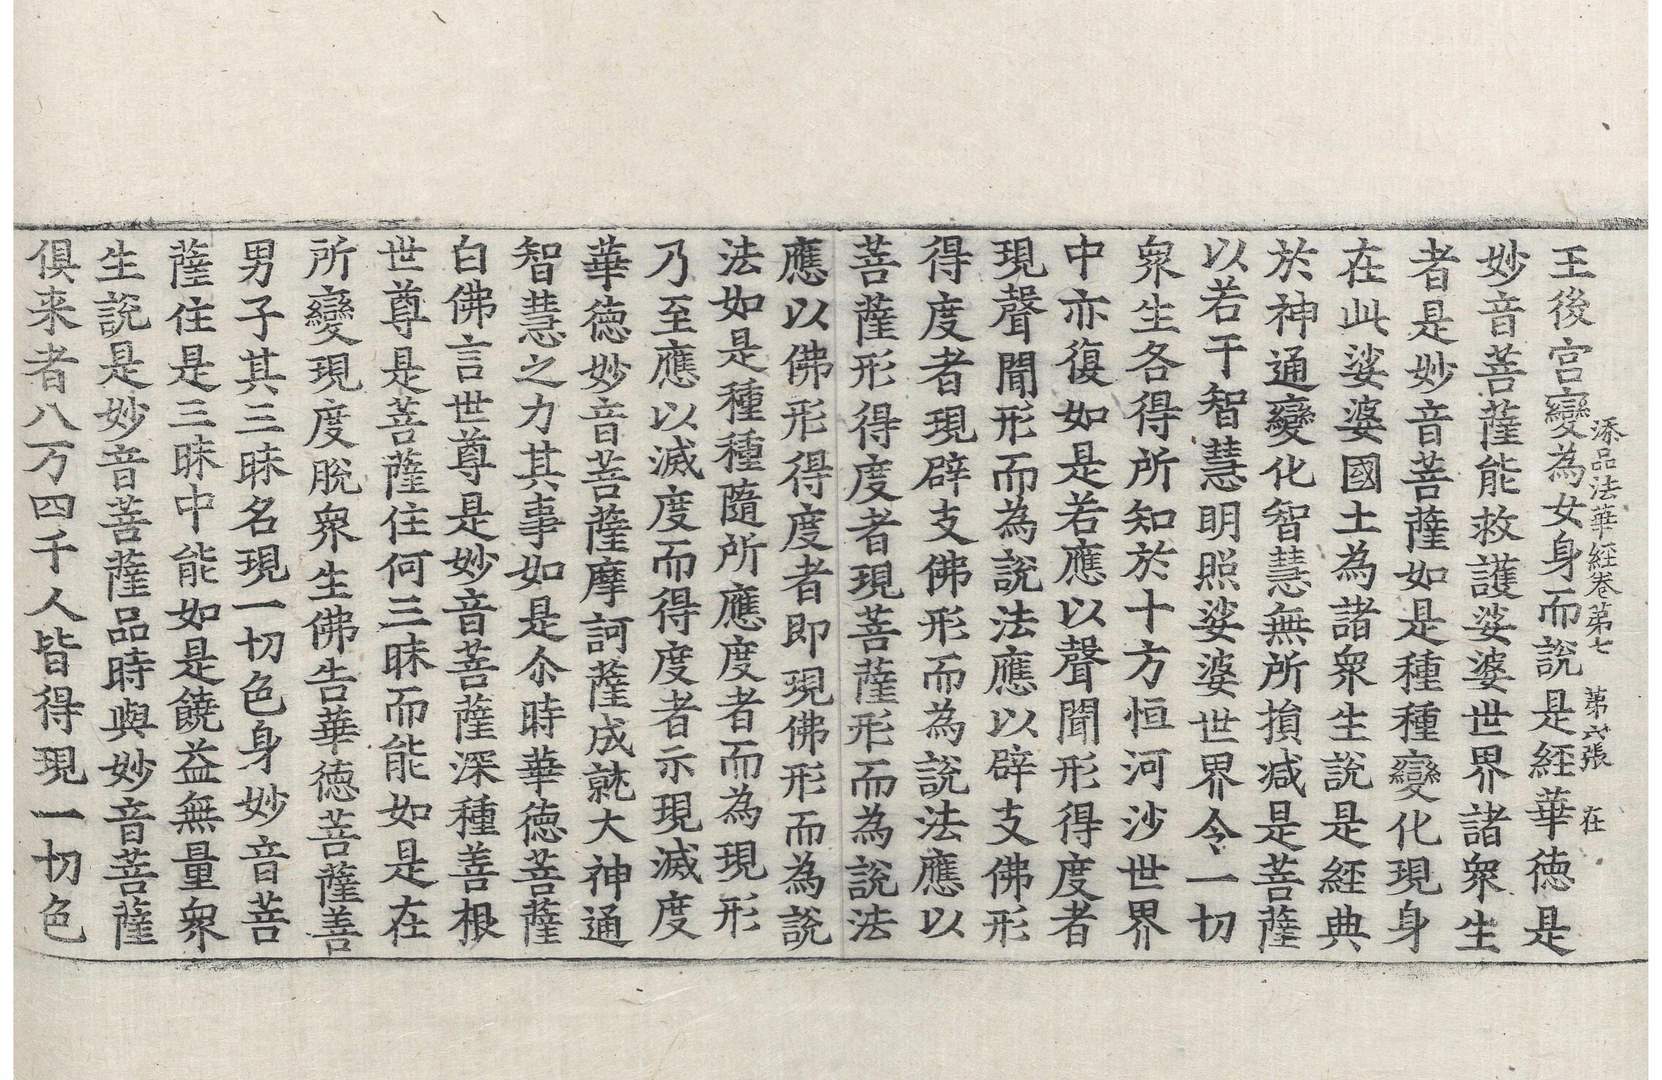 添品法華經卷第七　第六張　在
王後宮變為女身而說是經華德是
妙音菩薩能救護娑婆世界諸衆生
者是妙音菩薩如是種種變化現身
在此娑婆國土為諸衆生說是經典
於神通變化智慧無所損减是菩薩
以若干智慧明照娑婆世界令一切
衆生各得所知於十方恒河沙世界
中亦復如是若應以聲聞形得度者
現聲聞形而為說法應以辟支佛形
得度者現辟支佛形而為說法應以
菩薩形得度者現菩薩形而為說法
應以佛形得度者即現佛形而為說
法如是種種隨所應度者而為現形
乃至應以滅度而得度者示現滅度
華德妙音菩薩摩訶薩成就大神通
智慧之力其事如是尒時華德菩薩
白佛言世尊是妙音菩薩深種善根
世尊是菩薩住何三昧而能如是在
所變現度脫衆生佛告華德菩薩善
男子其三昧名現一切色身妙音菩
薩住是三昧中能如是饒益無量衆
生說是妙音菩薩品時與妙音菩薩
俱来者八万四千人皆得現一切色